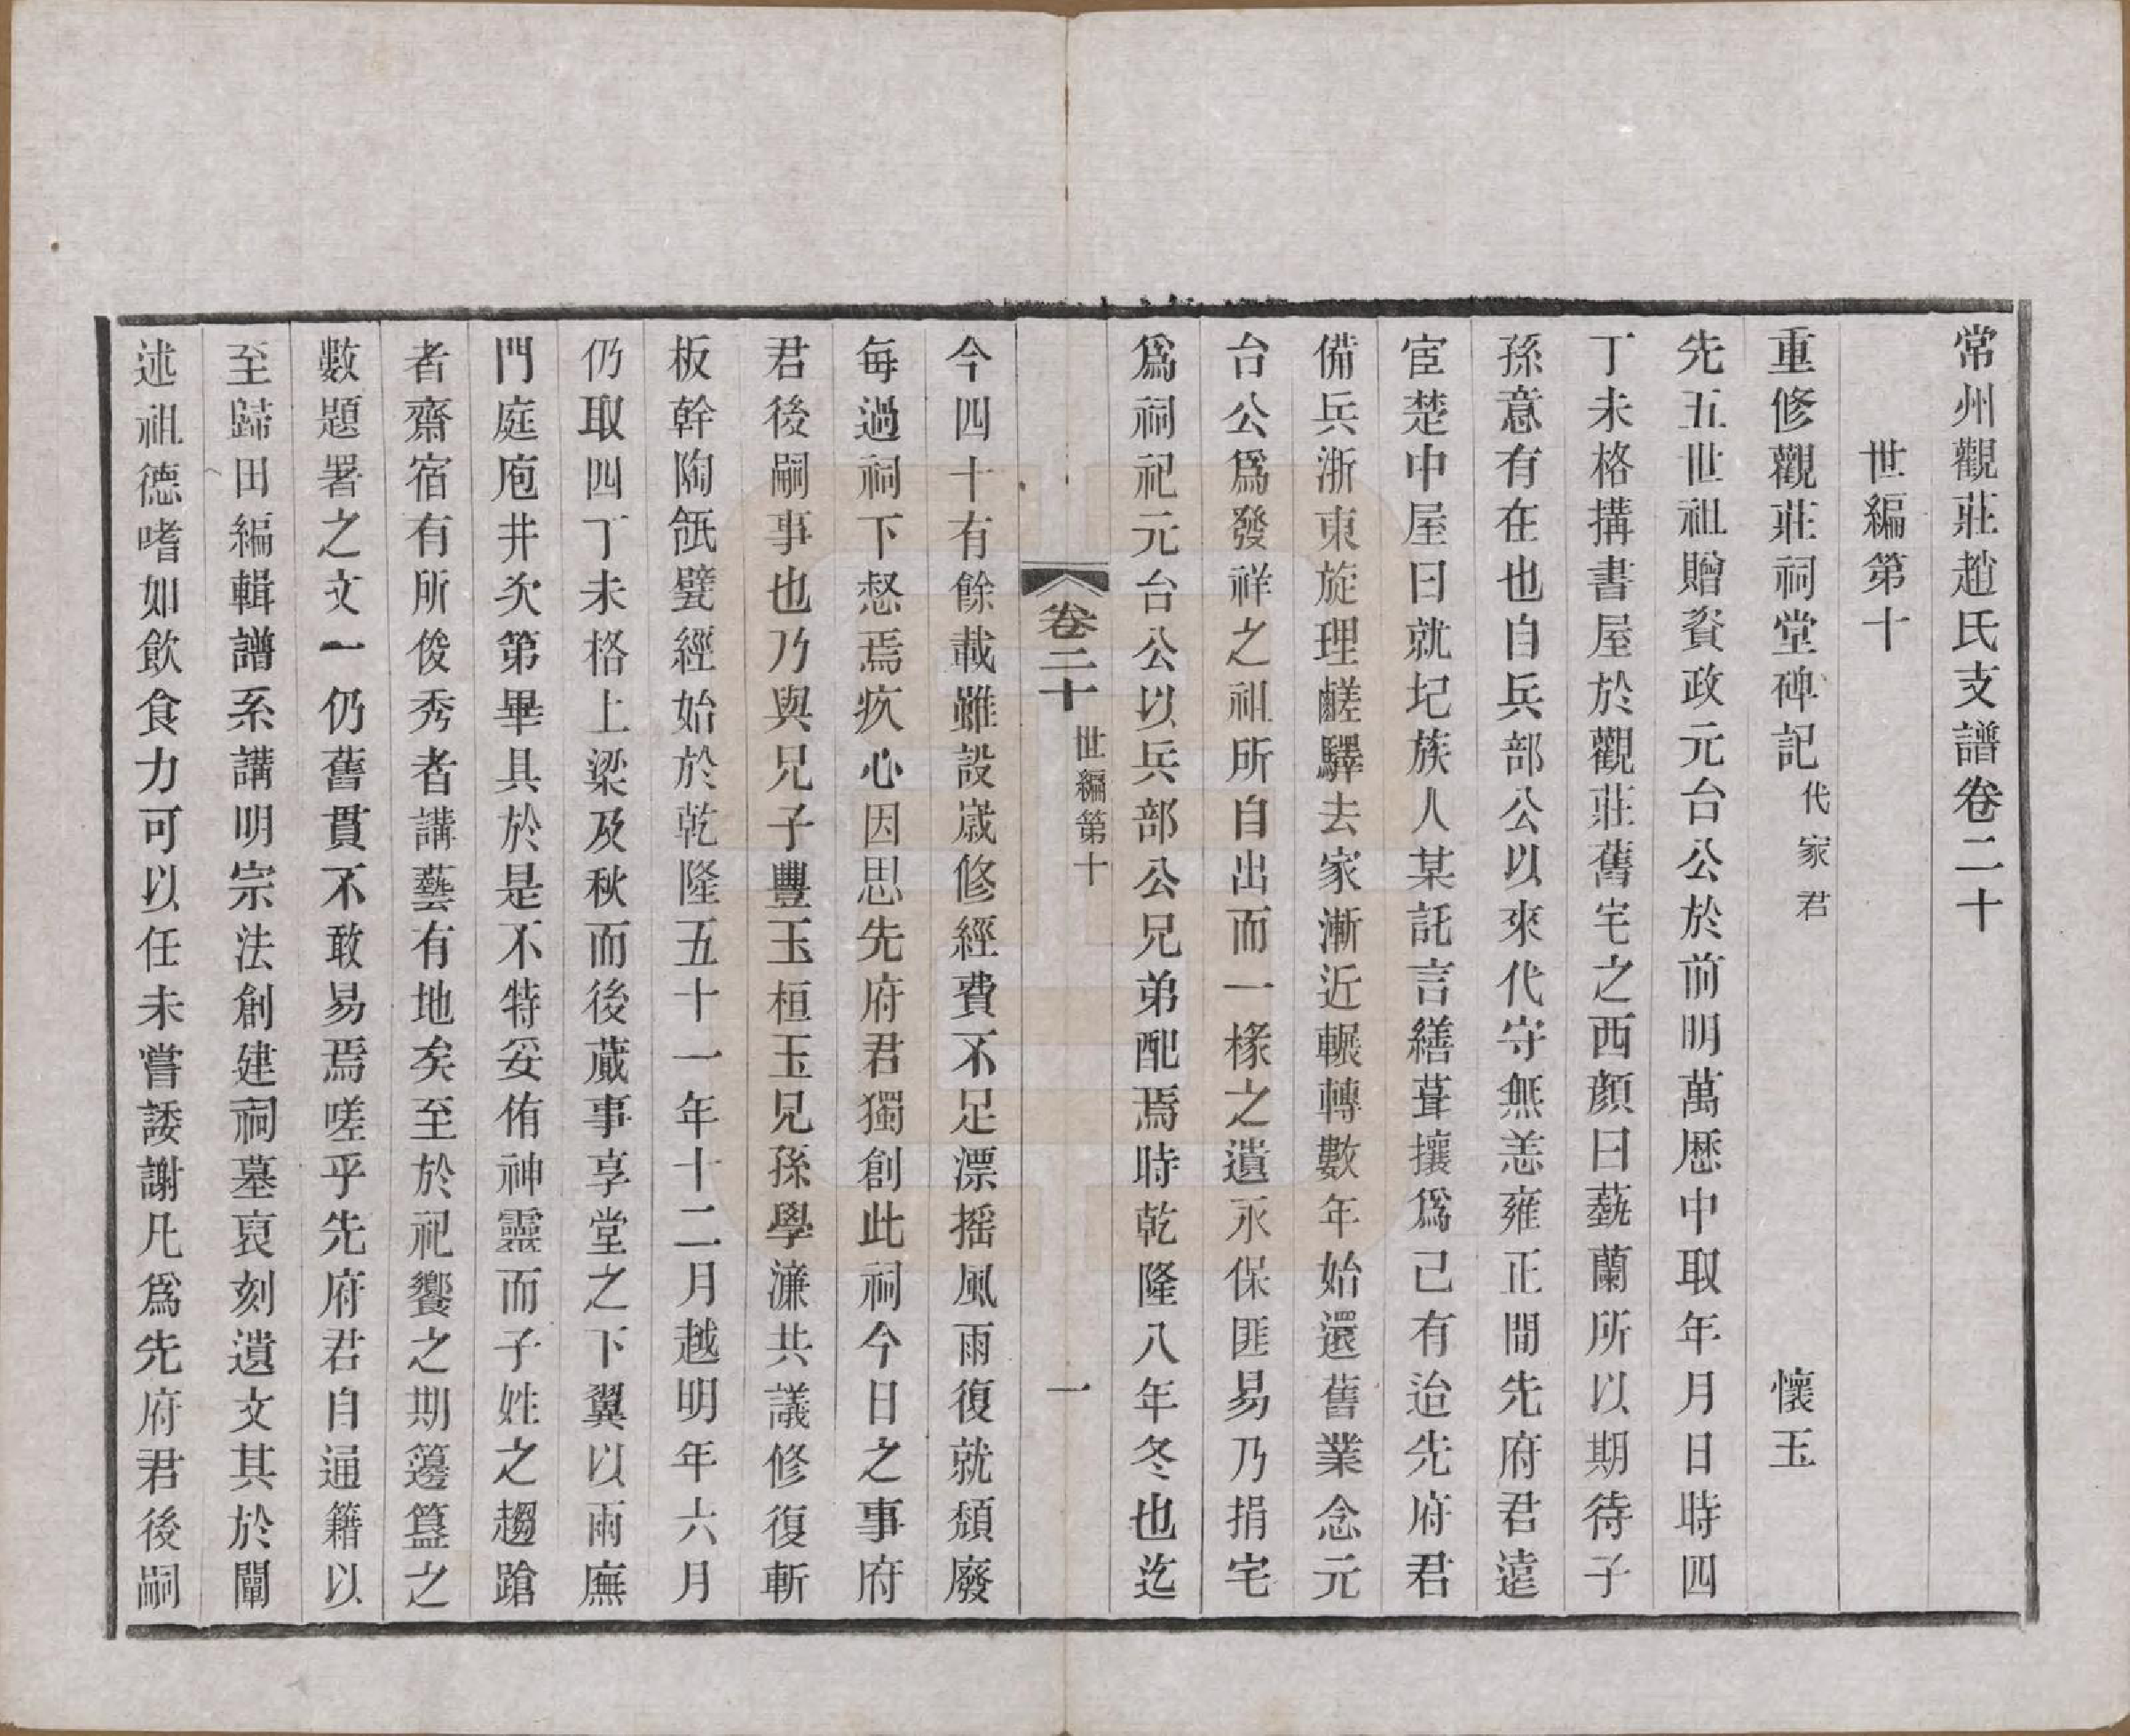 常州觀莊趙氏支譜卷二十
世編第十
重修觀莊祠堂碑記代家君　懷玉
先五世祖贈資政元台公於前明萬歷中取年月日時四
丁未格搆書屋於觀莊舊宅之西顏曰蓺蘭所以期待子
孫意有在也自兵部公以來代守無恙雍正間先府君遠
宦楚中屋曰就圮族人某託言繕葺攘爲己有迨先府君
備兵浙東旋理鹺驛去家漸近輾轉數年始還舊業念元
台公爲發祥之祖所自出而一椽之遺永保匪易乃捐宅
爲祠祀元台公以兵部公兄弟配焉時乾隆八年冬也迄
卷二十　世編第十　一
今四十有餘載雖設歲修經費不足漂摇風雨復就頽廢
每過祠下惄焉疚心因思先府君獨創此祠今日之事府
君後嗣事也乃與兄子豐玉桓玉兄孫學濂共議修復斬
板幹陶瓴甓經始於乾隆五十一年十二月越明年六月
仍取四丁未格上梁及秋而後蕆事享堂之下翼以兩廡
門庭庖井次第畢具於是不特妥侑神靈而子姓之趨蹌
者齋宿有所俊秀者講藝有地矣至於祀饗之期籩簋之
數題署之文一仍舊貫不敢易焉嗟乎先府君自通籍以
至歸田編輯譜系講明宗法創建祠墓裒刻遺文其於闡
述祖德嗜如飲食力可以任未嘗諉謝凡爲先府君後嗣